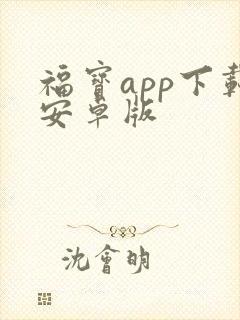 福寶app下載
安卓版
沈會明